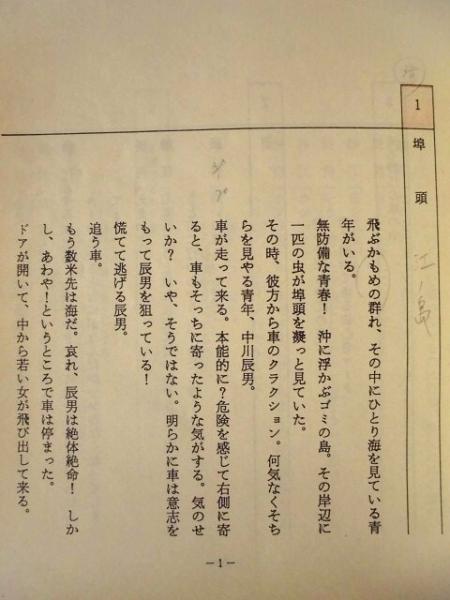 1
埠頭
江ノ島
飛ぶかもめの群れ、その中にひとり海を見ている青
年がいる。
無防備な青春！　沖に浮かぶゴミの島。その岸辺に
一匹の虫が埠頭を凝っと見ていた。
その時、彼方から車のクラクション。何気なくそち
らを見やる青年、中川辰男。
ジープ
車が走って来る。本能的に？危険を感じて右側に寄
ると、車もそっちに寄ったような気がする。気のせ
いか？　いや、そうではない。明らかに車は意志を
もって辰男を狙っている！
慌てて逃げる辰男。
追う車。
もう数米先は海だ。哀れ、辰男は絶体絶命！　しか
し、あわや！というところで車は停まった。
ドアが開いて、中から若い女が飛び出して来る。
－1－